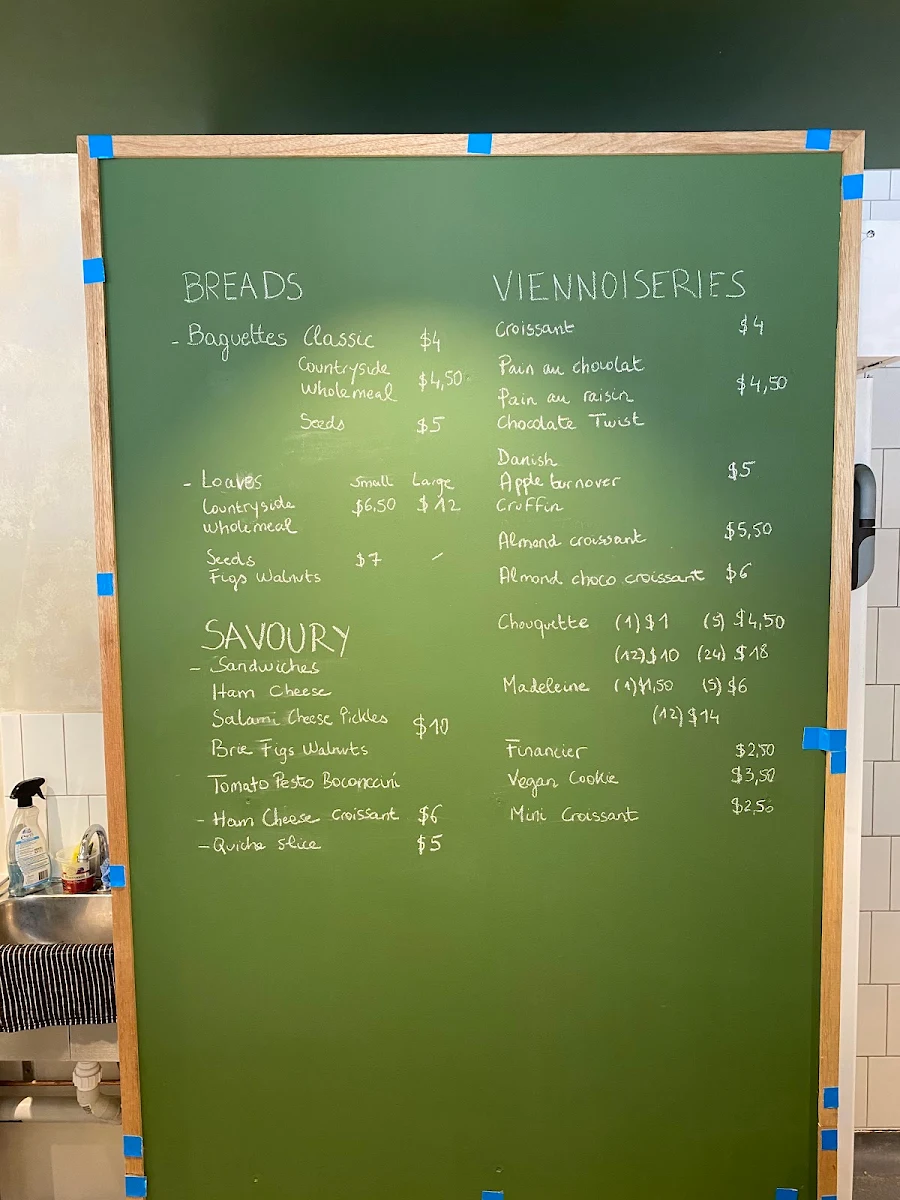 BREADS
- Baguettes Classic $4
Countryside
Wholemeal $4,50
Seeds $5
- Loaves Small Large
Countryside $6,50 $12
Wholemeal
Seeds $7 -
Figs Walnuts
SAVOURY
- Sandwiches
Ham Cheese
Salami Cheese Pickles $10
Brie Figs Walnuts
Tomato Pesto Boconccini
- Ham Cheese croissant $6
- Quiche slice $5
VIENNOISERIES
Croissant $4
Pain au chocolat
Pain au raisin $4,50
Chocolate Twist
Danish
Apple turnover $5
Cruffin
Almond croissant $5,50
Almond choco croissant $6
Chouquette (1) $1 (5) $4,50
(12) $10 (24) $18
Madeleine (1) $1,50 (5) $6
(12) $14
Financier $2,50
Vegan Cookie $3,50
Mini Croissant $2,50